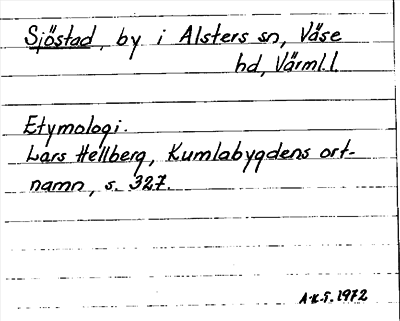 Sjöstad, by i Alsters sn, Väse
hd, Värml. l.
Etymologi.
Lars Hellberg, Kumlabygdens ort-
namn, s. 327.
A-K.T. 1972